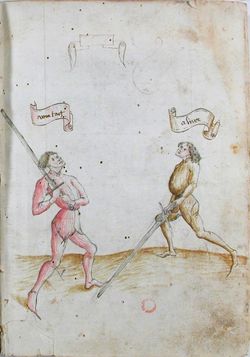 vom tag
alber